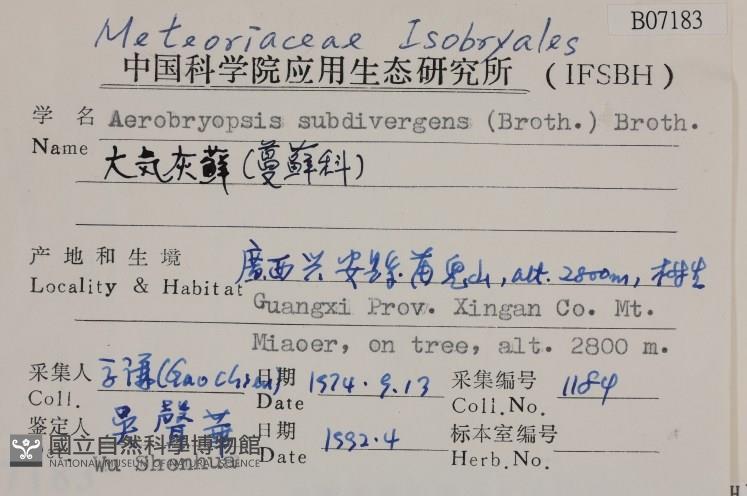 B07183
Meteoriaceae Isobryales
中国科学院应用生态研究所 (IFSBH)
学名 Aerobryopsis subdivergens (Broth.) Broth.
Name 大气灰藓(蔓藓科)
产地和生境 廣西兴安縣苗兒山, alt. 2800m, 树生
Locality & Habitat Guangxi Prov. Xingan Co. Mt.
Miaoer, on tree, alt. 2800 m.
采集人 (Gao Chien) 日期 1974.9.13 采集编号 1184
Coll. Date Coll.No.
鉴定人 吴聲華 日期 1992.4 标本室编号
Wu Shenhua Date Herb.No.
國立自然科學博物館
NATIONAL MUSEUM OF NATURAL SCIENCE